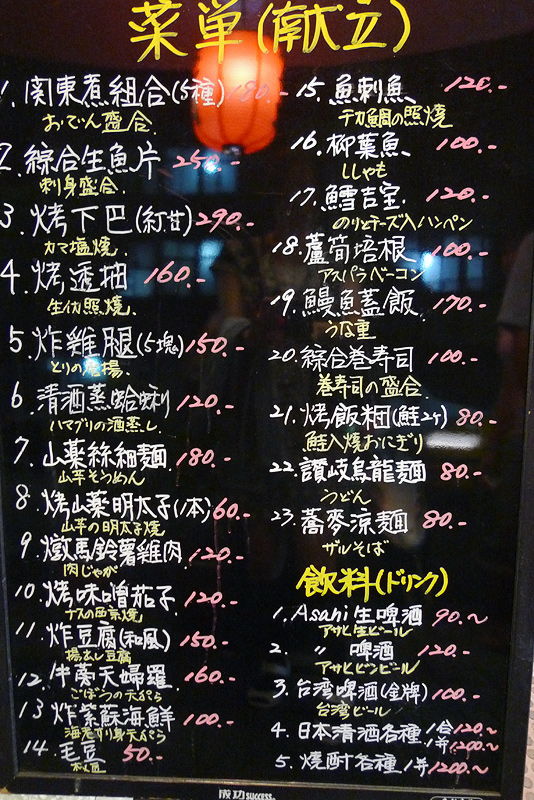 菜単(献立)
1. 関東煮組合(5種) 180.-
おでん盛合.
2. 綜合生魚片 250.-
刺身盛合.
3. 烤下巴(紅甘) 290.-
カマ塩焼.
4. 烤透抽 160.-
生イカ照焼.
5. 炸雞腿(5塊) 150.-
とりの唐揚.
6. 清酒蒸蛤蜊 120.-
ハマグリの酒蒸し.
7. 山薬絲細麺 180.-
山芋そうめん
8. 烤山薬明太子(1本) 60.-
山芋の明太子焼
9. 燉馬鈴薯雞肉 120.-
肉じゃが
10. 烤味噌茄子 120.-
ナスの西京焼
11. 炸豆腐(和風) 150.-
揚出し豆腐
12. 牛蒡天婦羅 160.-
ごぼうの天ぷら
13. 炸紫蘇海鮮 100.-
海老すり身天ぷら
14. 毛豆 50.-
枝豆
15. 魚刺魚 120.-
16. 柳葉魚 100.-
ししゃも
17. 鱈吉宝. 120.-
のりとチーズ入ハンペン
18. 蘆筍培根 100.-
アスパラベーコン
19. 鰻魚蓋飯 170.-
うな重
20. 綜合巻寿司 100.-
巻寿司の盛合
21. 烤飯糰(鮭2ケ) 80.-
鮭入焼おにぎり
22. 讃岐烏龍麺 80.-
うどん
23. 蕎麥涼麺 80.-
ザルそば
飲料(ドリンク)
1. Asahi生啤酒 90.~
アサヒ生ビール
2. 〃 啤酒 120.-
アサヒビンビール
3. 台湾啤酒(金牌) 100.-
台湾ビール
4. 日本清酒各種 1合120~
1瓶1200~
5. 焼酎各種 1瓶1200~
成功 SUCCESS.